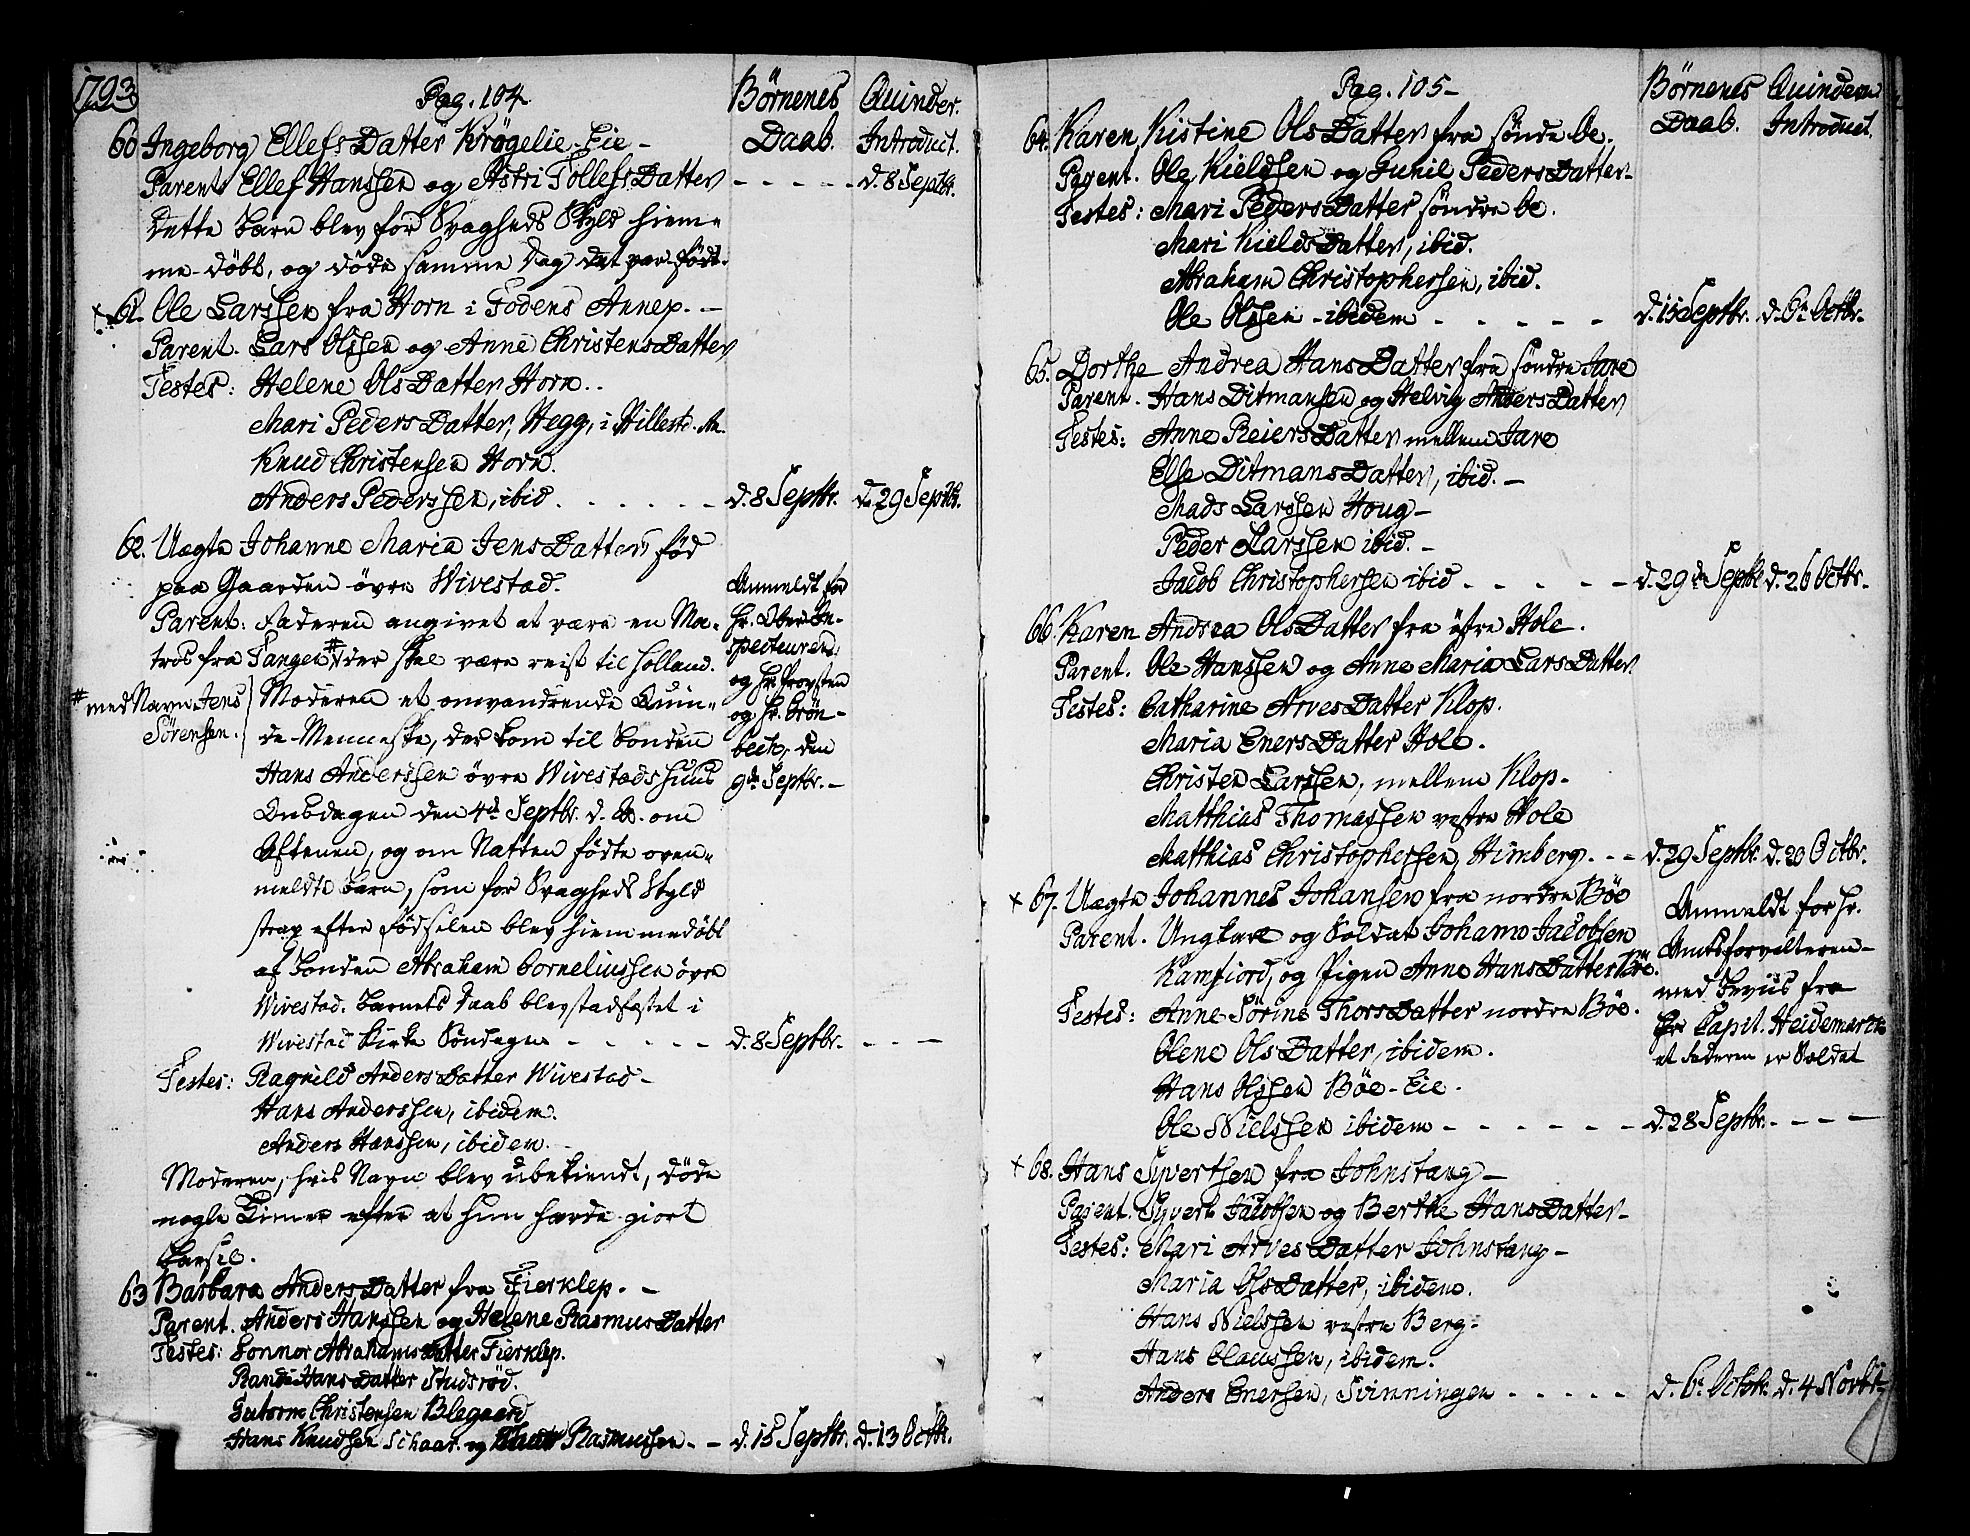 1793
Pag. 104.
Börnenes Daab.
Quinder. Introduct.
60 Ingeborg EllefsDatter Krøgelie-Eie -
Parent. Ellef Hanssen og Astri TollefsDatter - - - - - d. 8 Septbr.
Dette Barn blev for Svagheds Skyld hiem-
me-döbt, og döde samme Dag det var födt.
× 61. Ole Larssen fra Horn i Fodens Annex. -
Parent. Lars Olssen og Anne ChristensDatter
Testes: Helene OlsDatter Horn.
Mari PedersDatter, Hegg, i Hillest. An.
Knud Christensen Horn.
Anders Pederssen, ibid. - - - - - d. 8 Septbr. d. 29 Septbr.
62. Uægte Johanne Maria JensDatter född
paa Gaarden övre Wivestad.
Parent: Faderen angivet at være en Ma-
tros fra Tangen # der skal være reist til Holland.
# med Navn Jens
Sörensen.
Moderen et omvandrende Quin-
de-Menneske, der kom til Bonden
Hans Anderssen övre Wivestads huus
Onsdagen den 4de Septbr. d. A. om
Aftenen, og om Natten födte oven-
meldte Barn, som for Svagheds Skyld
strax efter Födselen blev hiemmedöbt
af Bonden Abraham Corneliussen övre
Wivestad. Barnets Daab blev stadfæstet i
Wivestad Kirke Söndagen - - - - - d. 8 Septbr. - - -
Anmeldt for
Hr. Ober-In-
specteuren:
og Hr. Provsten
og Hr. Grön-
bech, den
9de Septbr. -
Testes: Ragnild AndersDatter Wivestad -
Hans Anderssen, ibidem.
Anders Hanssen, ibidem.
Moderen, hvis Navn blev ubekiendt, döde
nogle Timer efter at hun havde giort
Barsel.
63 Barbara AndersDatter fra Fierklep. -
Parent. Anders Hanssen og Helene RasmusDatter
Testes: Gonnor AbrahamsDatter Fierklep.
Randi HansDatter Studsröd.
Guttorm Christensen Blegaard
Hans Knudsen Schaar. og Rasmussen - - d. 15 Septbr. d. 13 Octbr.
Pag. 105 -
Börnenes Daab.
Quindern Introduct.
64. Karen Kistine OlsDatter fra sönde Be.
Parent. Ole Kieldsen og Gunil PedersDatter -
Testes: Mari PedersDatter söndre be.
Mari KieldsDatter, ibid.
Abraham Christophersen, ibid.
Ole Olssen - ibidem - - - - - d. 15 Septbr. d. 6. Octbr.
65. Dorthe Andrea HansDatter fra söndre Jare
Parent. Hans Ditmansen og Helvig AndersDatter
Testes: Anne ReiersDatter mellem Jare
Else DitmansDatter, ibid. -
Mads Larssen Houg -
Peder Larssen ibid. -
Jacob Christophersen ibid - - - - - d. 29de Septbr. d. 26 Octbr.
66. Karen Andrea OlsDatter fra östre Hole.
Parent. Ole Hanssen og Anne Maria LarsDatter
Testes: Catharine ArvesDatter Klop.
Maria EnersDatter Hole.
Christen Larssen, mellem Klop -
Matthias Thomassen vestre Hole
Matthias Christophersen, Himberg. - - d. 29 Septbr. d. 20 Octbr.
× 67. Uægte Johannes Johansen fra nordre Böe
Parent. Ungkarl og Soldat Johan Jacobsen
Kamfiord, og Pigen Anne HansDatter Böe.
Testes: Anne Sörine ThorsDatter nordre Böe.
Olene OlsDatter, ibidem.
Hans Olssen Böe-Eie.
Ole Nielssen ibidem - - - - - - d. 28 Septbr. - - - -
Anmeldt for Hr.
Amtsforvalteren -
med Beviis fra
Hr. Capit. Heidemarck
at Faderen er Soldat
× 68. Hans Syvertsen fra Johnstang -
Parent. Syvert Jacobsen og Berthe HansDatter -
Testes: Mari ArvesDatter Johnstang -
Maria OlsDatter, ibidem.
Hans Nielssen vestre Berg -
Hans Claussen, ibidem.
Anders Enersen, Svinningen - - - - - d. 6. Octbr. d. 4 Novbr.